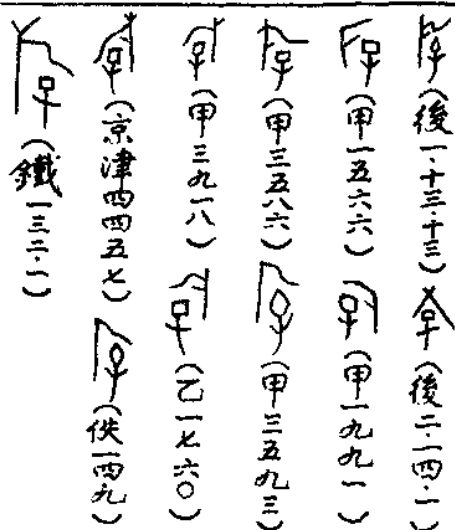 (後一·十三·十三) (後二·一四·一)
(甲一五六六) (甲一九九一)
(甲三五八六) (甲三五九三)
(甲三九一八) (乙一七六〇)
(京津四四五七) (佚一四九)
(鐵一三二·一)